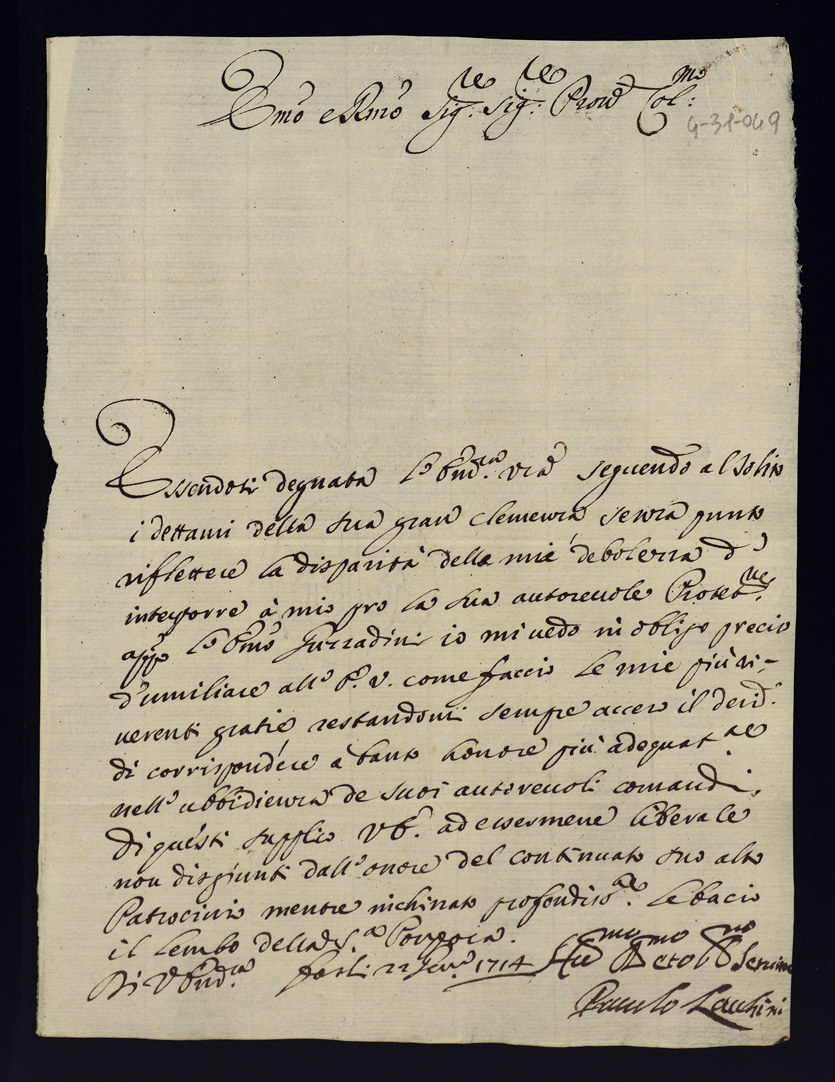 Emo e Rmo Sigre Sigre Prone Colmo:
4-31-049
Essendosi degnata l'Emza Vra seguendo al solito
i dettami della sua gran clemenza senza punto
riflettere la disparità della mia debolezza d'
interporre à mio pro la sua autorevole Protetne
appo l'Emo Gozzadini io mi vedo in obligo preciso
d'umiliare all'E. V. come faccio le mie più ri-
verenti gratie restandomi sempre acceso il desid.o
di corrispondere à tanto honore più adeguatne
nell'ubbidienza de suoi autorevoli comandi,
di questi supplico VE. ad essermene liberale
non disgiunti dall'onore del continuato suo alto
Patrocinio mentre inchinato profondisse. le bacio
il lembo della S.a Porpora.
Di V Emza. Forlì 22 1714 Humo Deto Obo Servitore
Paulo